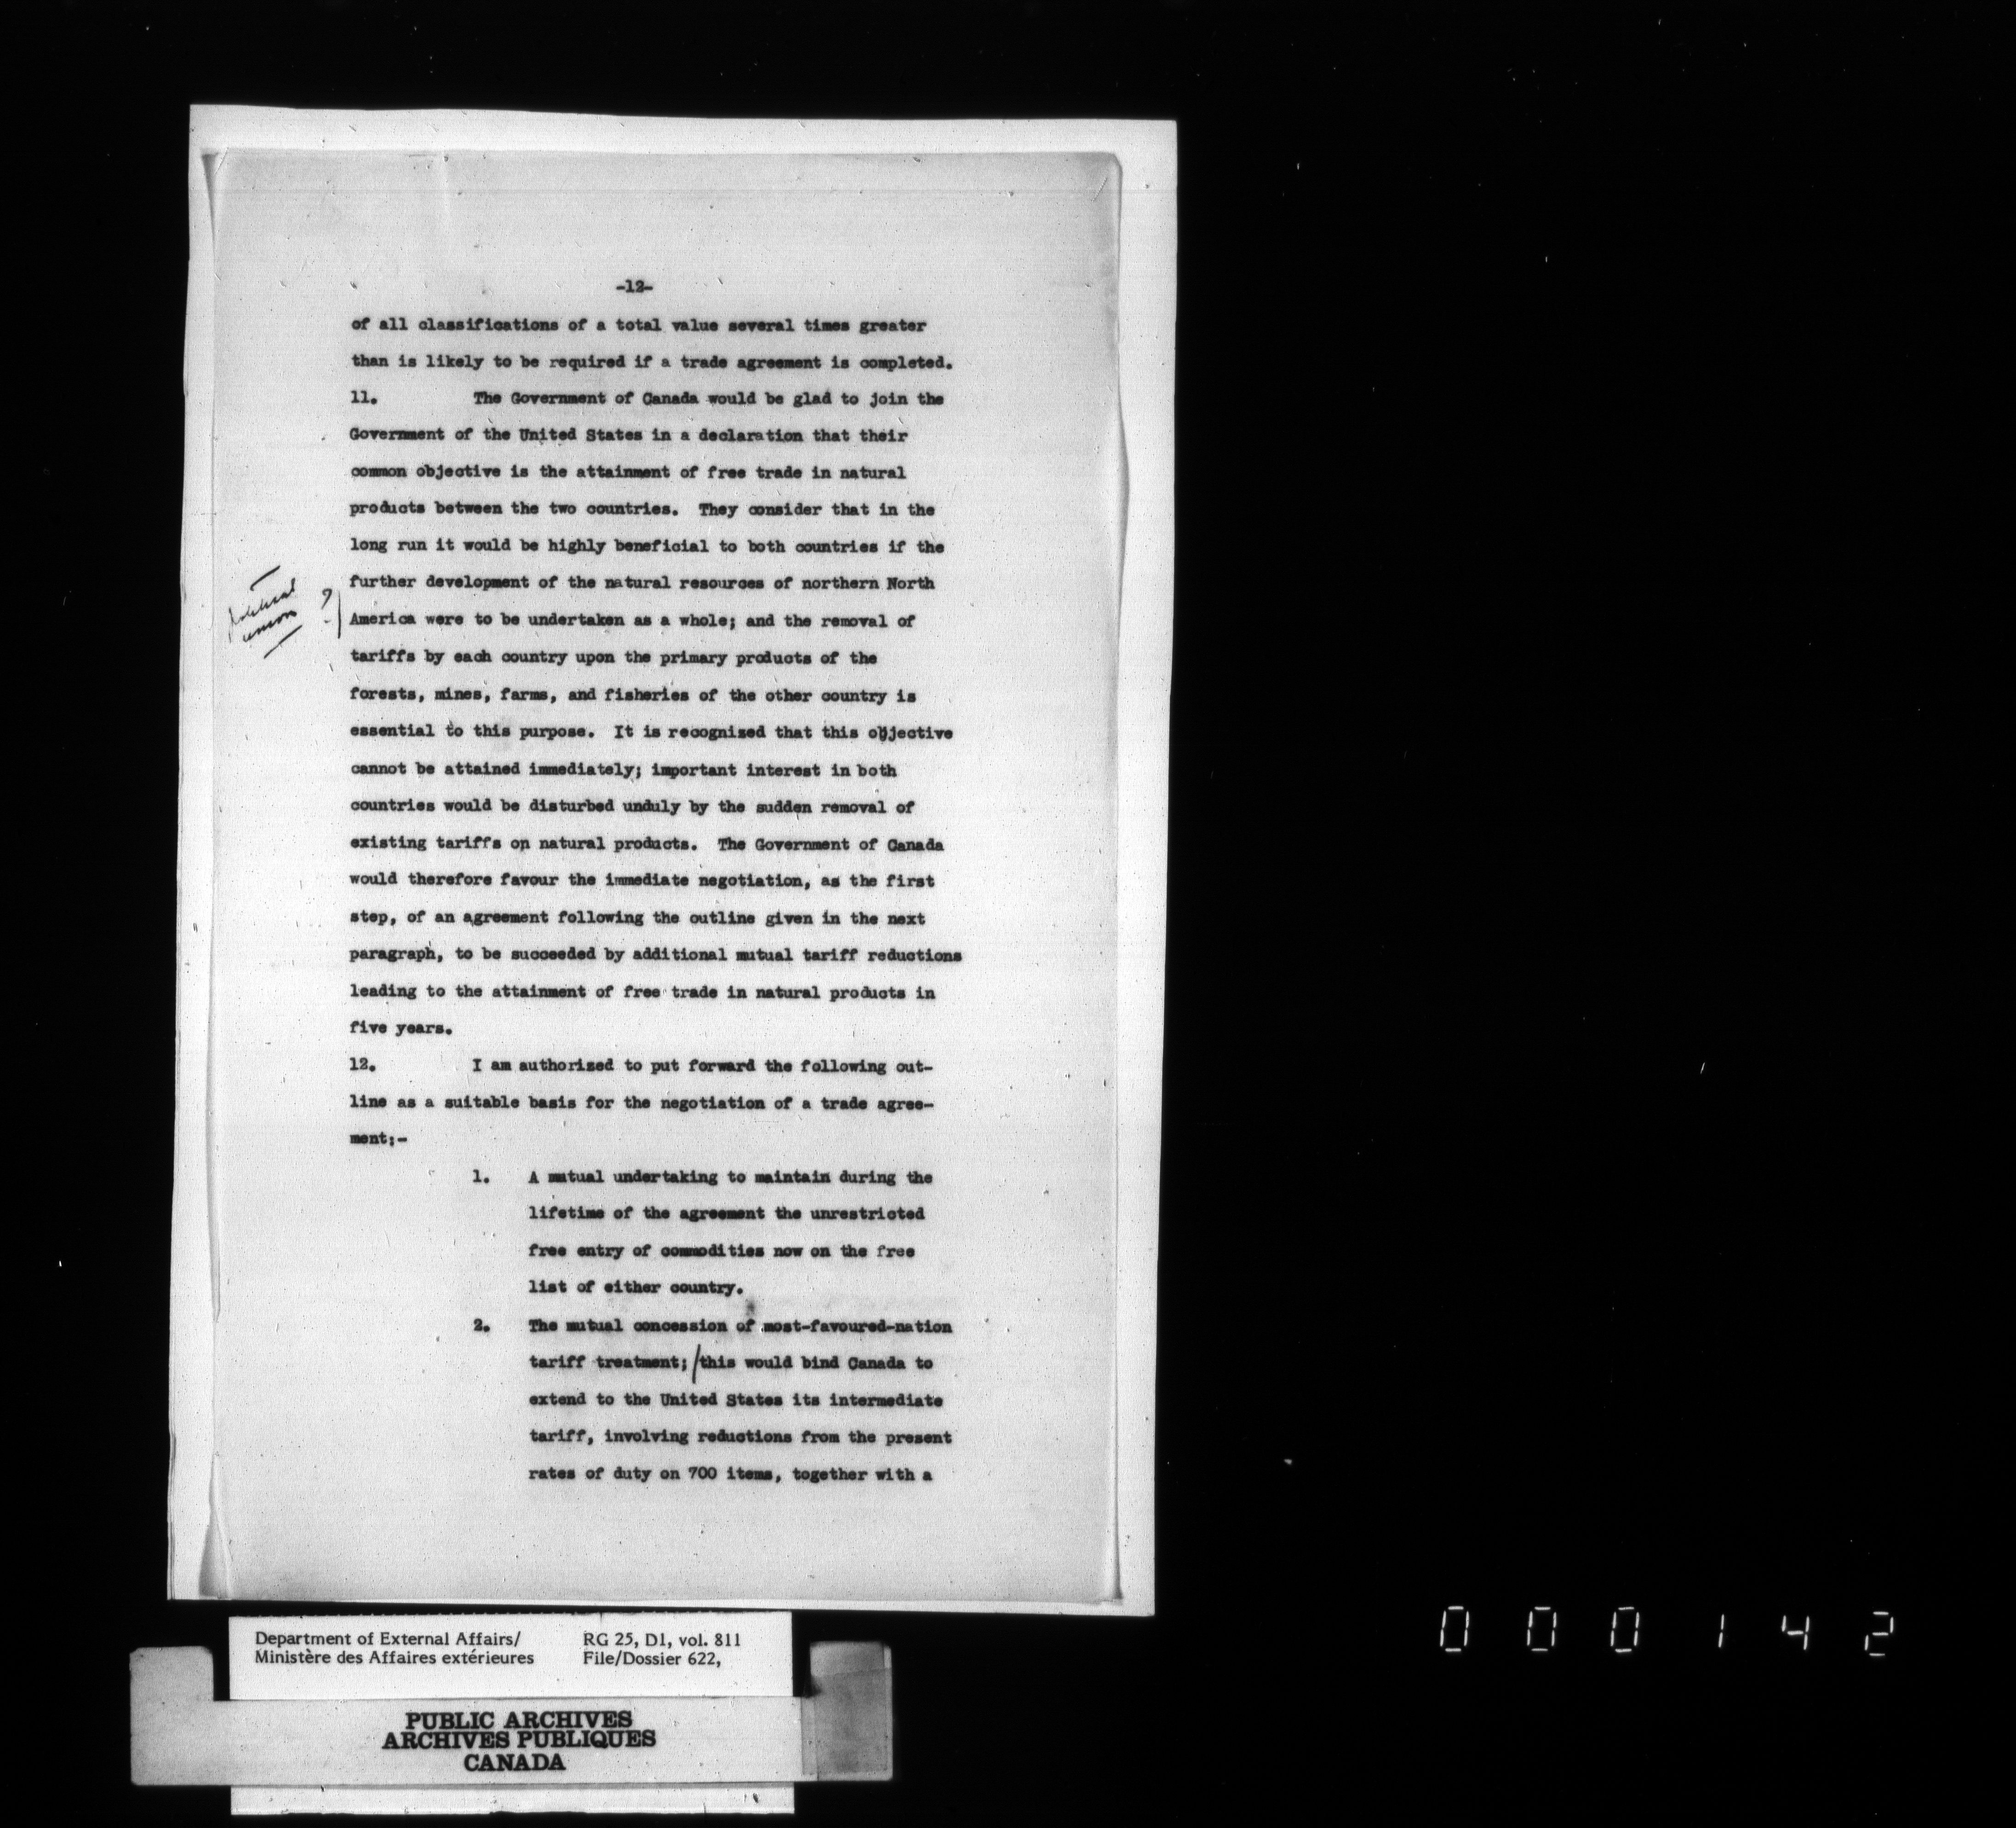 -12-
of all classifications of a total value several times greater
than is likely to be required if a trade agreement is completed.
11. The Government of Canada would be glad to join the
Government of the United States in a declaration that their
common objective is the attainment of free trade in natural
products between the two countries. They consider that in the
long run it would be highly beneficial to both countries if the
further development of the natural resources of northern North
political
union ?
America were to be undertaken as a whole; and the removal of
tariffs by each country upon the primary products of the
forests, mines, farms, and fisheries of the other country is
essential to this purpose. It is recognized that this objective
cannot be attained immediately; important interest in both
countries would be disturbed unduly by the sudden removal of
existing tariffs on natural products. The Government of Canada
would therefore favour the immediate negotiation, as the first
step, of an agreement following the outline given in the next
paragraph, to be succeeded by additional mutual tariff reductions
leading to the attainment of free trade in natural products in
five years.
12. I am authorized to put forward the following out-
line as a suitable basis for the negotiation of a trade agree-
ment;-
1. A mutual undertaking to maintain during the
lifetime of the agreement the unrestricted
free entry of commodities now on the free
list of either country.
2. The mutual concession of most-favoured-nation
tariff treatment; /this would bind Canada to
extend to the United States its intermediate
tariff, involving reductions from the present
rates of duty on 700 items, together with a
Department of External Affairs/ RG 25, D1, vol. 811
Ministère des Affaires extérieures File/Dossier 622,
PUBLIC ARCHIVES
ARCHIVES PUBLIQUES
CANADA
000142